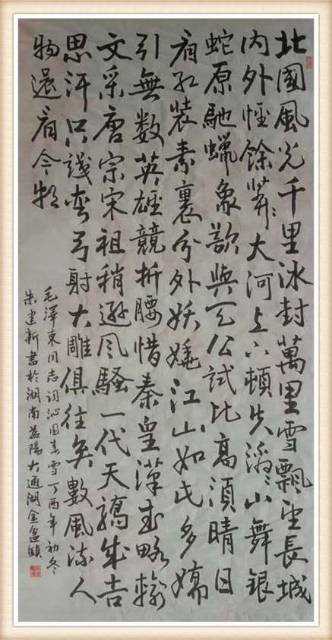 北國風光千里冰封萬里雪飄望長城
内外惟餘莽莽大河上下頓失滔滔山舞銀
蛇原馳蠟象欲與天公試比高須晴日
看紅裝素裹分外妖嬈江山如此多嬌
引無數英雄競折腰惜秦皇漢武略輸
文采唐宗宋祖稍遜風騷一代天驕成吉
思汗只識彎弓射大雕俱往矣數風流人
物還看今朝
毛澤東同志詞沁园春雪丁酉年初冬
朱建新書於湖南益陽大通湖金盆鎮